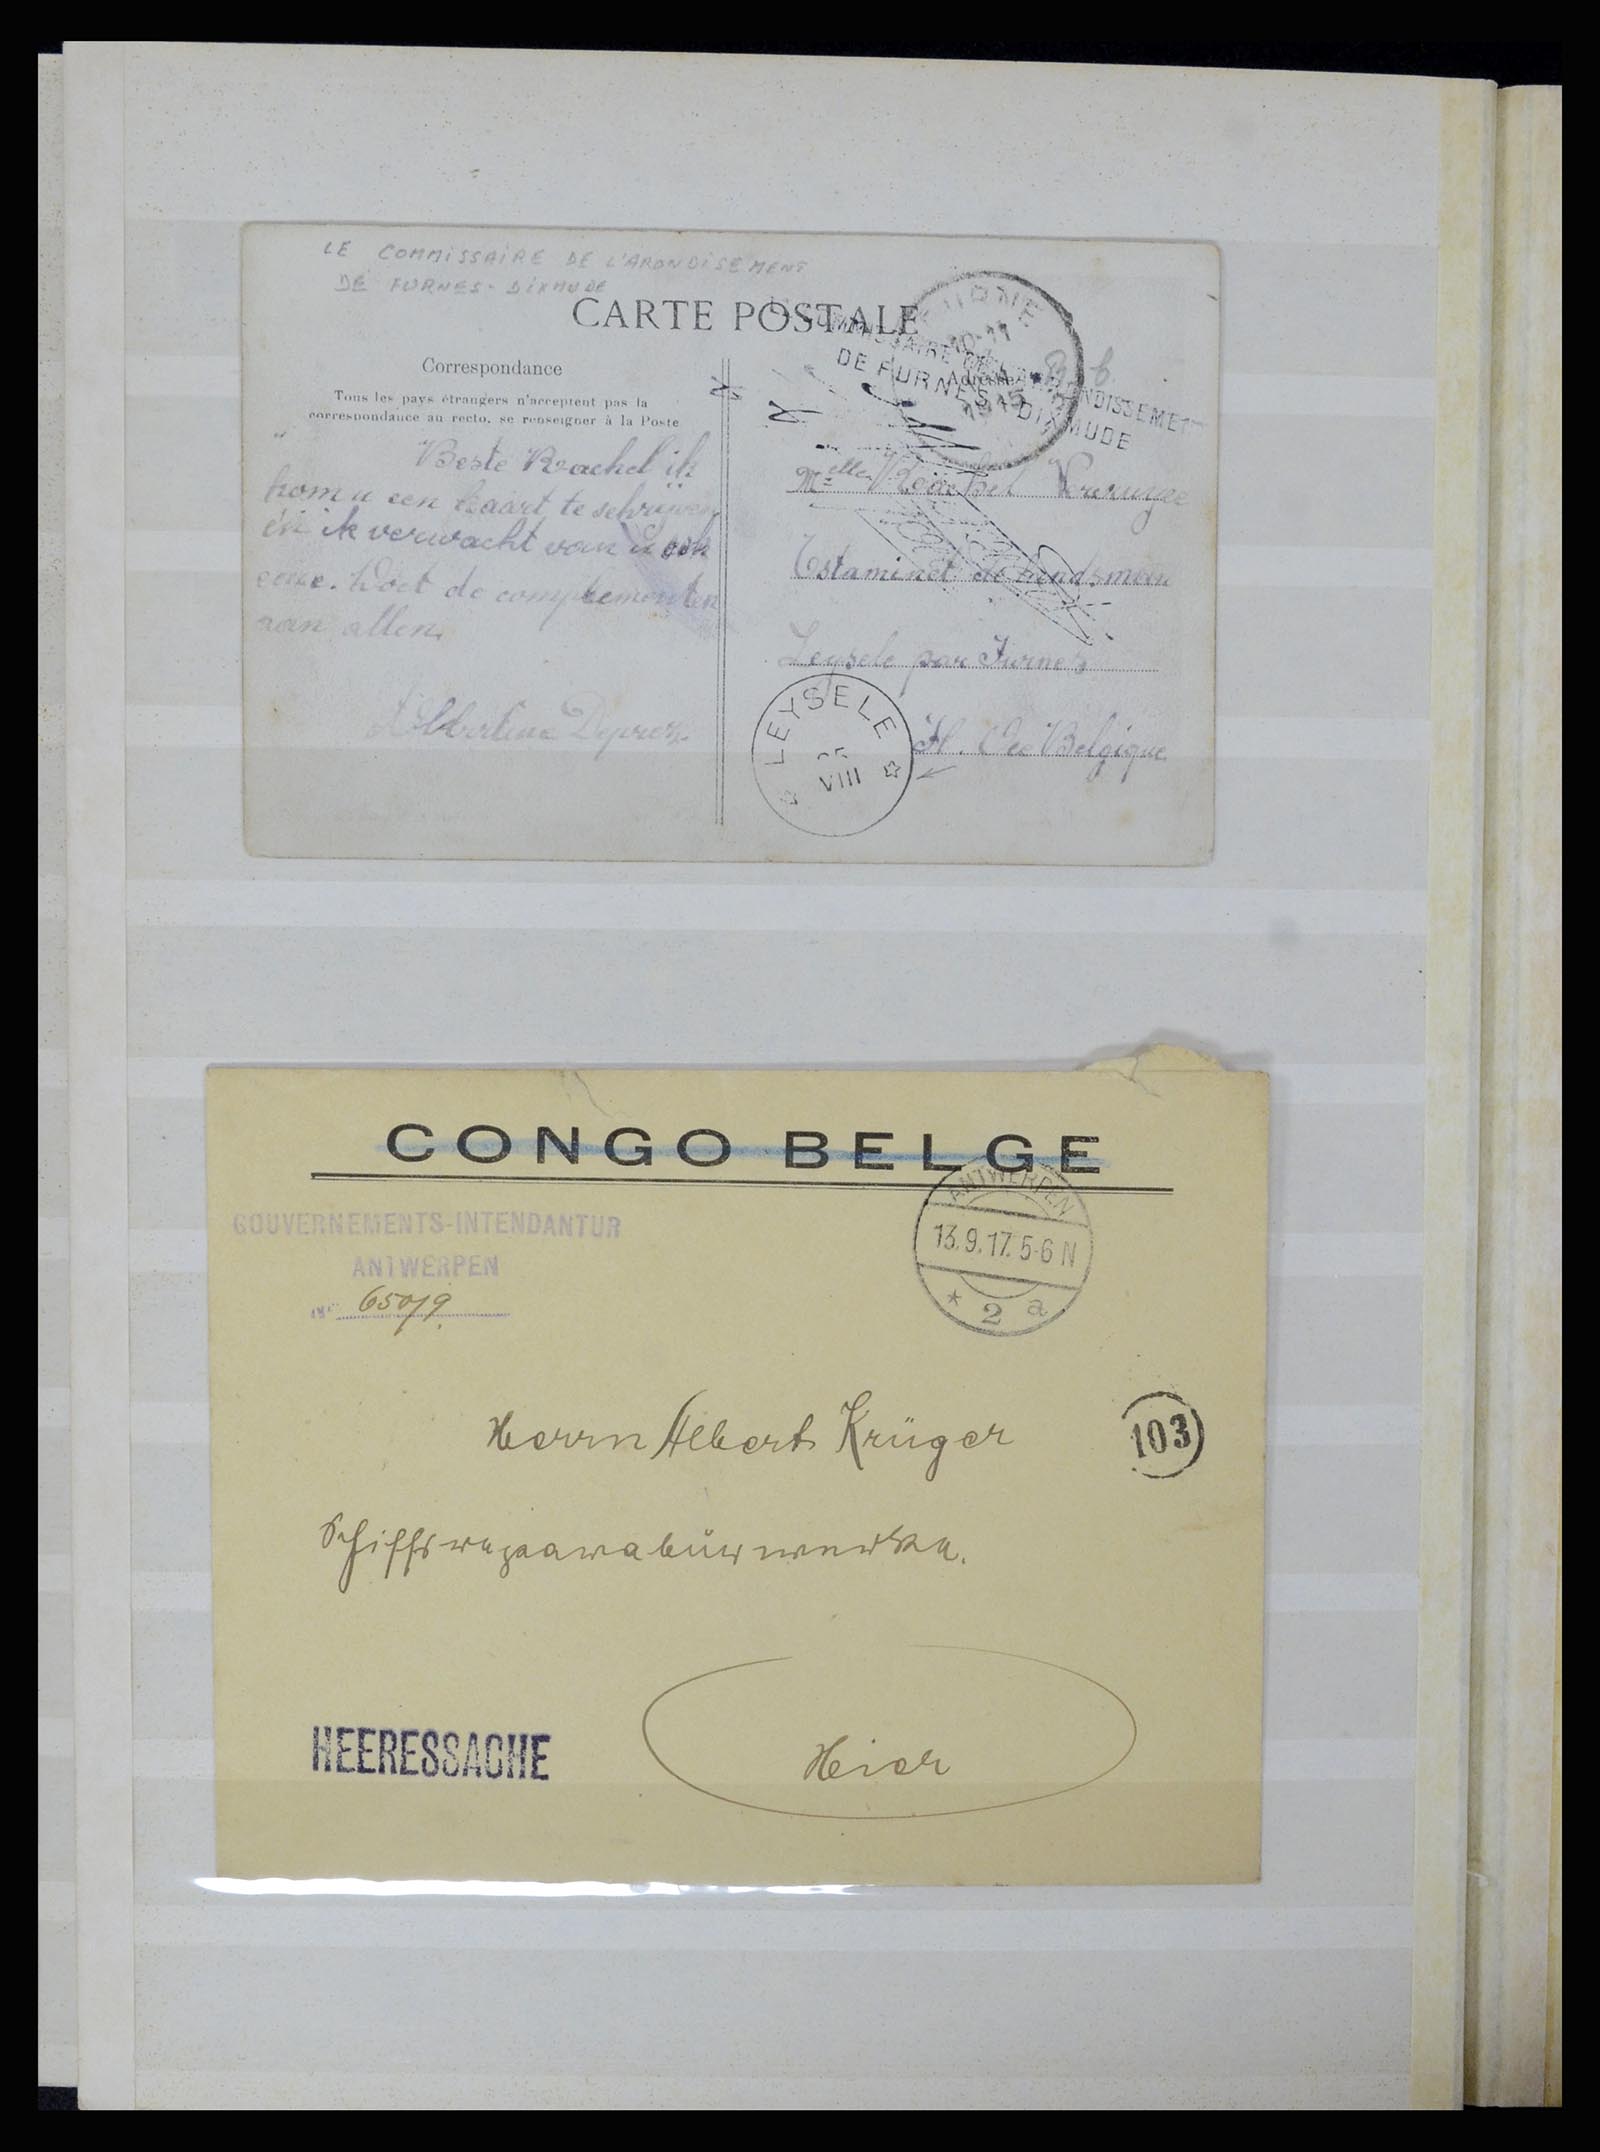 LE COMMISSAIRE DE L'ARONDISEMENT
DE FURNES-DIXMUDE
CARTE POSTALE
COMMISSAIRE DE L'ARRONDISSEMENT
DE FURNES-DIXMUDE
10-11
1915
B. 6
Correspondance
Adresse
Tous les pays étrangers n'acceptent pas la
correspondance au recto. se renseigner à la Poste
Beste Rachel ik
kom u een kaart te schrijven
en ik verwacht van u ook
eene. Doet de complementen
aan allen.
Albertine Deprez
Melle Rachel Vercruyce
Estaminet de
Leysele par Furnes
Fl. Occ Belgique
LEYSELE
VIII
CONGO BELGE
GOUVERNEMENTS-INTENDANTUR
ANTWERPEN
No 650/9.
ANTWERPEN
13.9.17. 5-6 N
* 2 a
Herrn Albert Krüger
103
Schiffsreparaturwerke.
HEERESSACHE
Hier